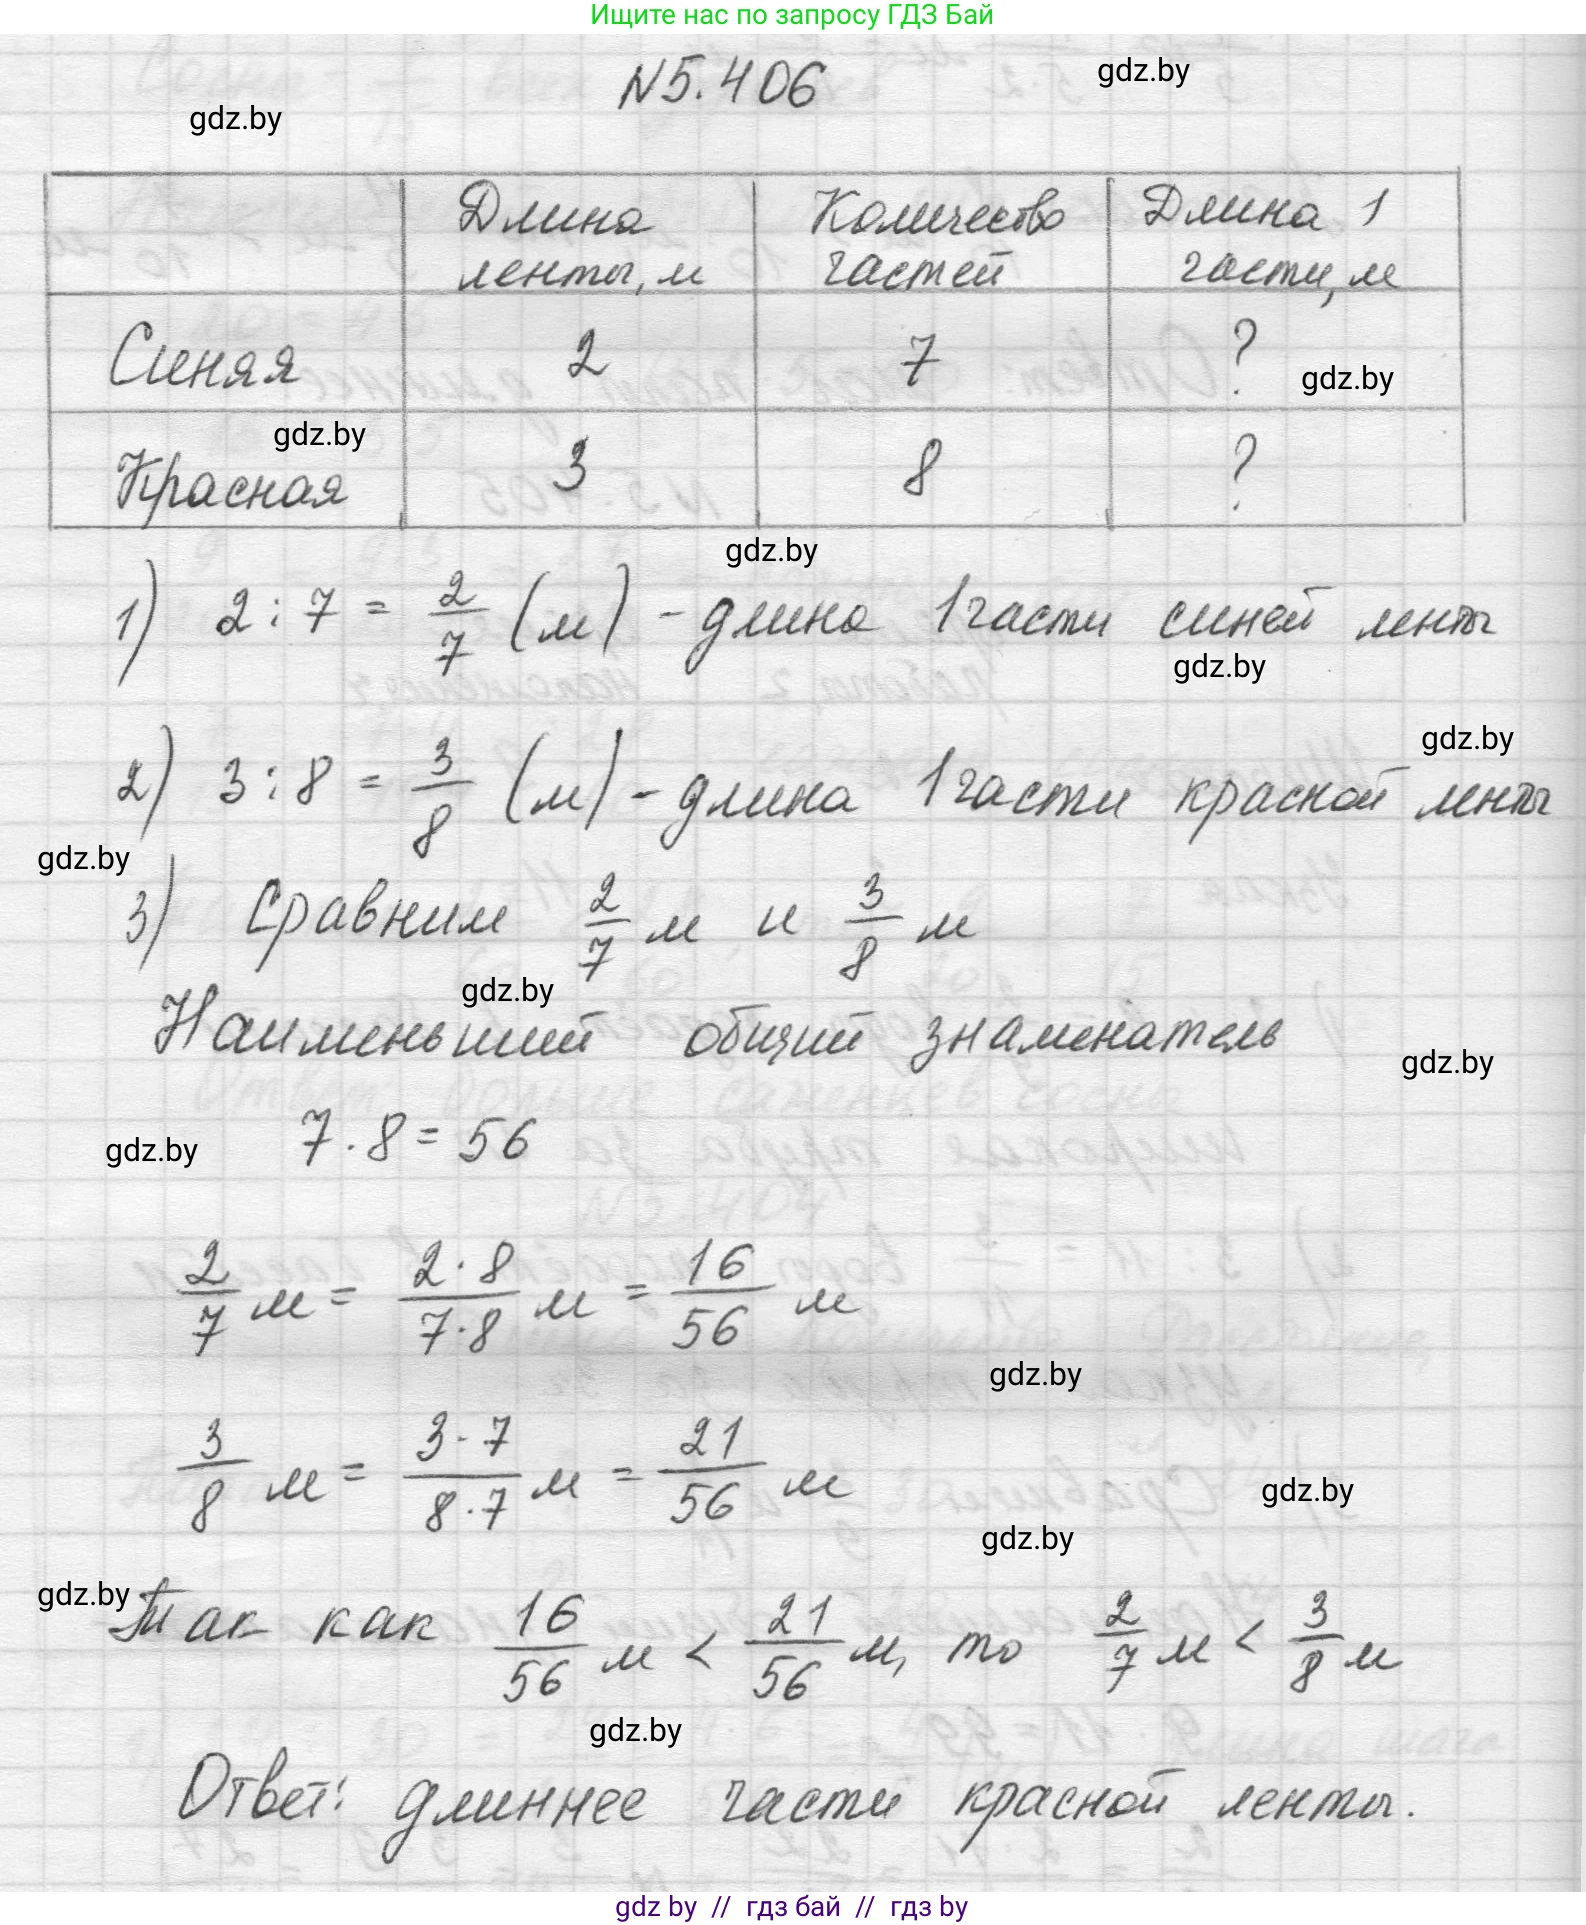 Ищите нас по запросу ГДЗ Бай
N5.406
gdz.by
gdz.by
Длина ленты, м | Количество частей | Длина 1 части, м
Синяя | 2 | 7 | ?
gdz.by
Красная | 3 | 8 | ?
gdz.by
gdz.by
1) 2 : 7 = 2/7 (м) - длина 1 части синей ленты
gdz.by
gdz.by
2) 3 : 8 = 3/8 (м) - длина 1 части красной ленты
gdz.by
3) Сравним 2/7 м и 3/8 м
gdz.by
Наименьший общий знаменатель
gdz.by
7 · 8 = 56
gdz.by
2/7 м = 2·8/7·8 м = 16/56 м
gdz.by
3/8 м = 3·7/8·7 м = 21/56 м
gdz.by
gdz.by
gdz.by
Так как 16/56 м < 21/56 м, то 2/7 м < 3/8 м
gdz.by
Ответ: длиннее части красной ленты.
gdz by // гдз бай // гдз by